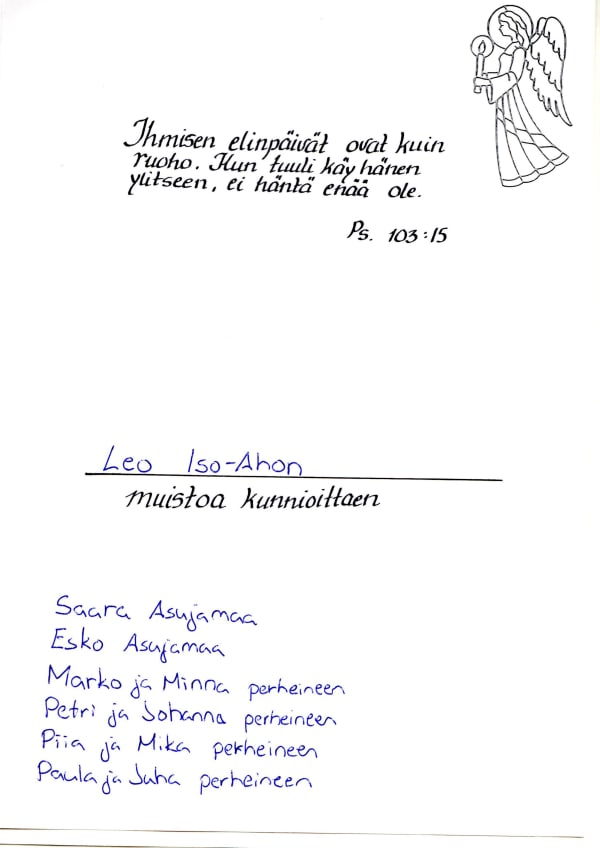 Ihmisen elinpäivät ovat kuin
ruoho. Kun tuuli käy hänen
ylitseen, ei häntä enää ole.
Ps. 103:15
Leo Iso-Ahon
muistoa kunnioittaen
Saara Asujamaa
Esko Asujamaa
Marko ja Minna perheineen
Petri ja Johanna perheineen
Piia ja Mika perheineen
Paula ja Juha perheineen